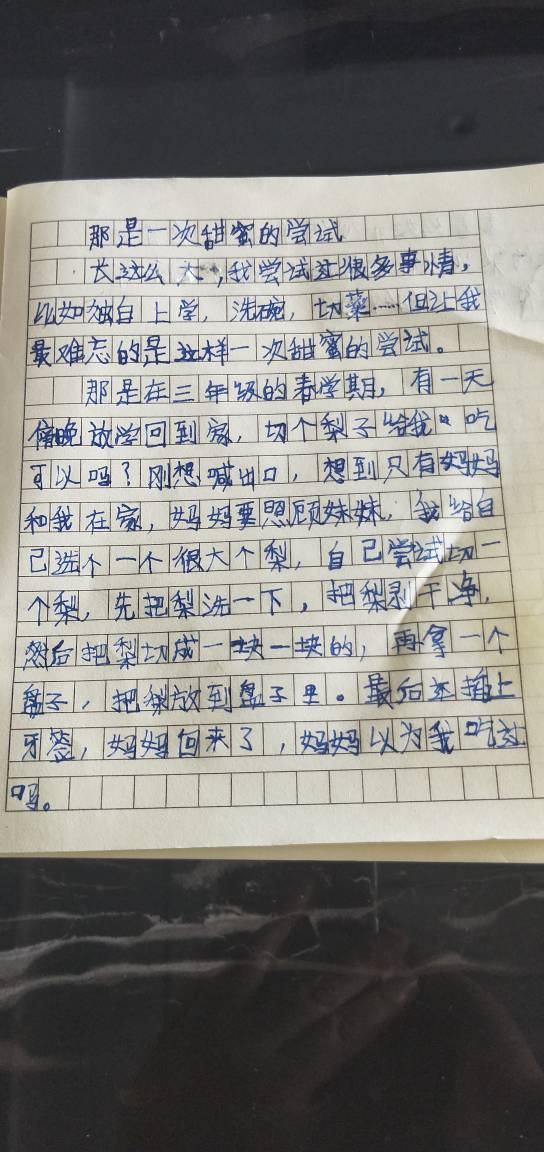 那是一次甜蜜的尝试
长这么大,我尝试过很多事情,
比如独自上学,洗碗,切菜……但让我
最难忘的是这样一次甜蜜的尝试。
那是在三年级的春学期,有一天
傍晚放学回到家,切个梨子给我吃
可以吗?刚想喊出口,想到只有妈妈
和我在家,妈妈要照顾妹妹,我给自
己选个一个很大个梨,自己尝试切一
个梨,先把梨洗一下,把梨剥干净,
然后把梨切成一块一块的,再拿一个
盘子,把梨放到盘子里。最后还插上
牙签,妈妈回来了,妈妈以为我吃过
吗。